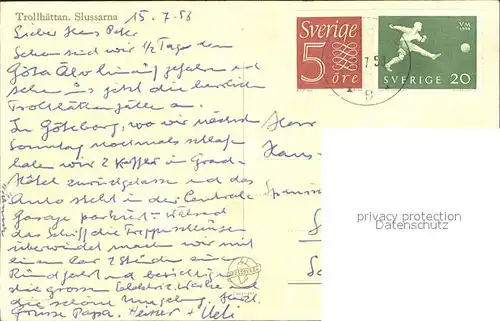 Trollhättan. Slussarna
15.7.58
Lieber Hans Peter
Schon sind wir 1/2 Tage den
Göta Älv hinauf gefahren und
sehen uns jetzt die herrlichen
Trollhättanfälle an.
In Göteborg, wo wir nächst
Sonntag nochmals schlafen
haben wir 2 Koffer im Grand-
Hôtel zurückgelassen und das
Auto steht in der Centrale
Garage parkiert. Während
das Schiff die Treppenschleusen
überwindet machen wir mit
einem Car 2 Stunden eine
Rundfahrt und besichtigen
die grossen Elektriz. Werke und
die schöne Umgebung. Herzl.
Grüsse Papa. Heiner + Ueli
Sverige
5
öre
VM
1958
SVERIGE 20
Herr
Hans-
privacy protection
Datenschutz